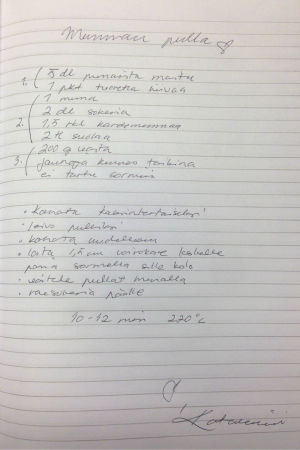 Mumman pulla
1. 5 dl punaista maitoa
1 pkt tuoretta hiivaa
2. 1 muna
2 dl sokeria
1,5 rkl kardemummaa
2 tl suolaa
200 g voita
3. jauhoja kunnes taikina
ei tartu sormiin
• Kohota kaksinkertaiseksi
• leivo pulliksi
• kohota uudelleen
• loita 1,5 cm voinokare keskelle
paina sormella sille kolo
• voitele pullat munalla
• raesokeria päälle
10-12 min 220°C